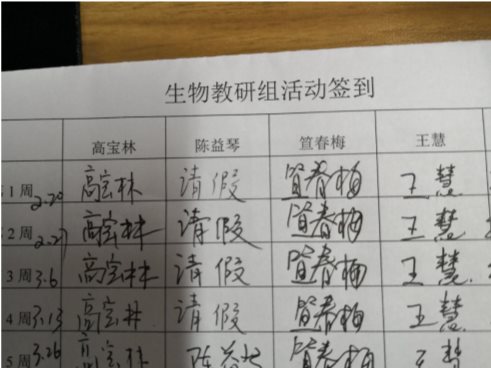 生物教研组活动签到
高宝林 陈益琴 笪春梅 王慧
1周 2.20 高宝林 请假 笪春梅 王慧
2周 2.27 高宝林 请假 笪春梅 王慧
3周 3.6 高宝林 请假 笪春梅 王慧
4周 3.13 高宝林 请假 笪春梅 王慧
5周 3.26 高宝林 陈益 笪春梅 王慧